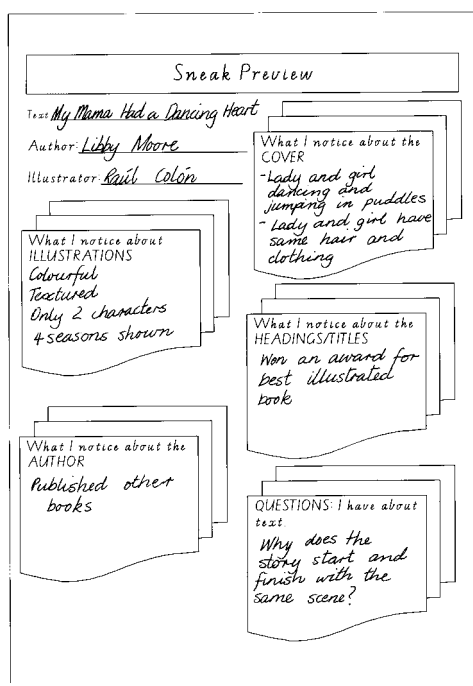 Sneak Preview
Text My Mama Had a Dancing Heart
Author: Libby Moore
Illustrator: Raúl Colón
What I notice about the
COVER
- Lady and girl
dancing and
jumping in puddles
- Lady and girl have
same hair and
clothing
What I notice about
ILLUSTRATIONS
Colourful
Textured
Only 2 characters
4 seasons shown
What I notice about the
HEADINGS/TITLES
Won an award for
best illustrated
book
What I notice about the
AUTHOR
Published other
books
QUESTIONS: I have about
text
Why does the
story start and
finish with the
same scene?